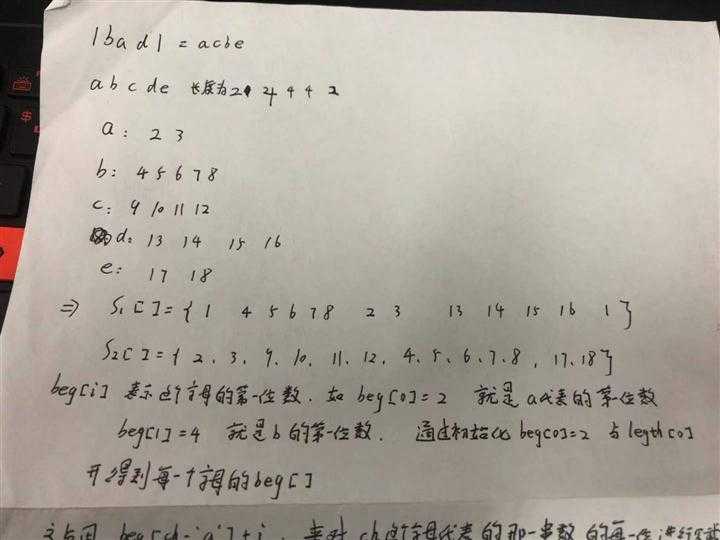 1bad1 = acbe
abcde 长度为2 4 4 4 2
a: 2 3
b: 4 5 6 7 8
c: 9 10 11 12
d: 13 14 15 16
e: 17 18
⇒ S₁[]={ 1 4 5 6 7 8 2 3 13 14 15 16 1 }
S₂[]={ 2、3、9、10、11、12、4、5、6、7、8、17、18 }
beg[i] 表示这个字母的第一位数. 如 beg[0]=2 就是a代表的第一位数
beg[1]=4 就是b的第一位数. 通过初始化 beg[0]=2 与 legth[0]
开得到每一个字母的beg[]
beg[ch-'a']+i, 来对 ch这个字母代表的那一串数的每一位进行